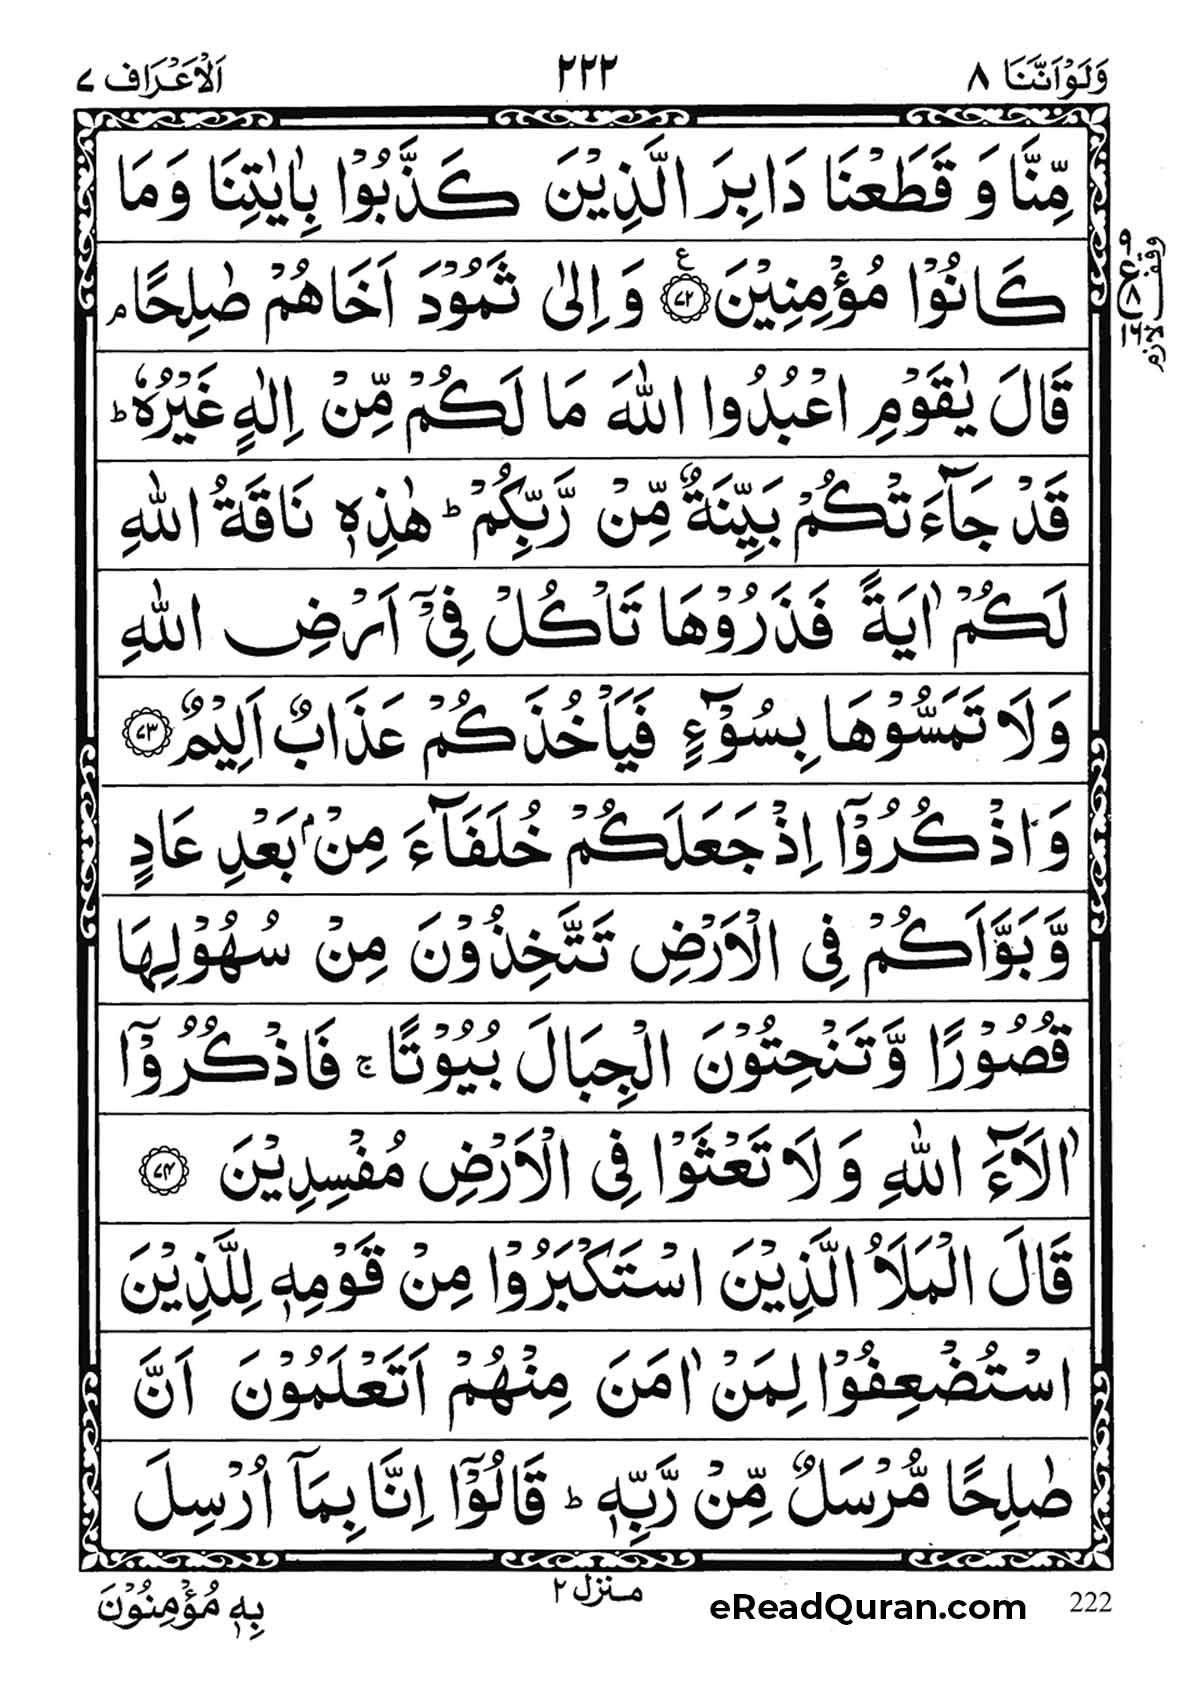 وَلَوْاَنَّنَا ٨
٢٢٢
اَلْاَعْرَاف ٧
مِّنَّا وَ قَطَعْنَا دَابِرَ الَّذِيْنَ كَذَّبُوْا بِاٰيٰتِنَا وَمَا
كَانُوْا مُؤْمِنِيْنَ ۧ﴿٧٢﴾ وَ اِلٰى ثَمُوْدَ اَخَاهُمْ صٰلِحًا ۘ
قَالَ يٰقَوْمِ اعْبُدُوا اللّٰهَ مَا لَكُمْ مِّنْ اِلٰهٍ غَيْرُهٗ ؕ
قَدْ جَآءَتْكُمْ بَيِّنَةٌ مِّنْ رَّبِّكُمْ ؕ هٰذِهٖ نَاقَةُ اللّٰهِ
لَكُمْ اٰيَةً فَذَرُوْهَا تَاْكُلْ فِيْۤ اَرْضِ اللّٰهِ
وَلَا تَمَسُّوْهَا بِسُوْٓءٍ فَيَاْخُذَكُمْ عَذَابٌ اَلِيْمٌ ﴿٧٣﴾
وَاذْكُرُوْۤا اِذْ جَعَلَكُمْ خُلَفَآءَ مِنْۢ بَعْدِ عَادٍ
وَّبَوَّاَكُمْ فِى الْاَرْضِ تَتَّخِذُوْنَ مِنْ سُهُوْلِهَا
قُصُوْرًا وَّتَنْحِتُوْنَ الْجِبَالَ بُيُوْتًا ۚ فَاذْكُرُوْۤا
اٰلَآءَ اللّٰهِ وَلَا تَعْثَوْا فِى الْاَرْضِ مُفْسِدِيْنَ ﴿٧٤﴾
قَالَ الْمَلَاُ الَّذِيْنَ اسْتَكْبَرُوْا مِنْ قَوْمِهٖ لِلَّذِيْنَ
اسْتُضْعِفُوْا لِمَنْ اٰمَنَ مِنْهُمْ اَتَعْلَمُوْنَ اَنَّ
صٰلِحًا مُّرْسَلٌ مِّنْ رَّبِّهٖ ؕ قَالُوْۤا اِنَّا بِمَاۤ اُرْسِلَ
وقف لازم
٩
ع ٨
١٦
بِهٖ مُؤْمِنُوْنَ
منزل ٢
eReadQuran.com
222